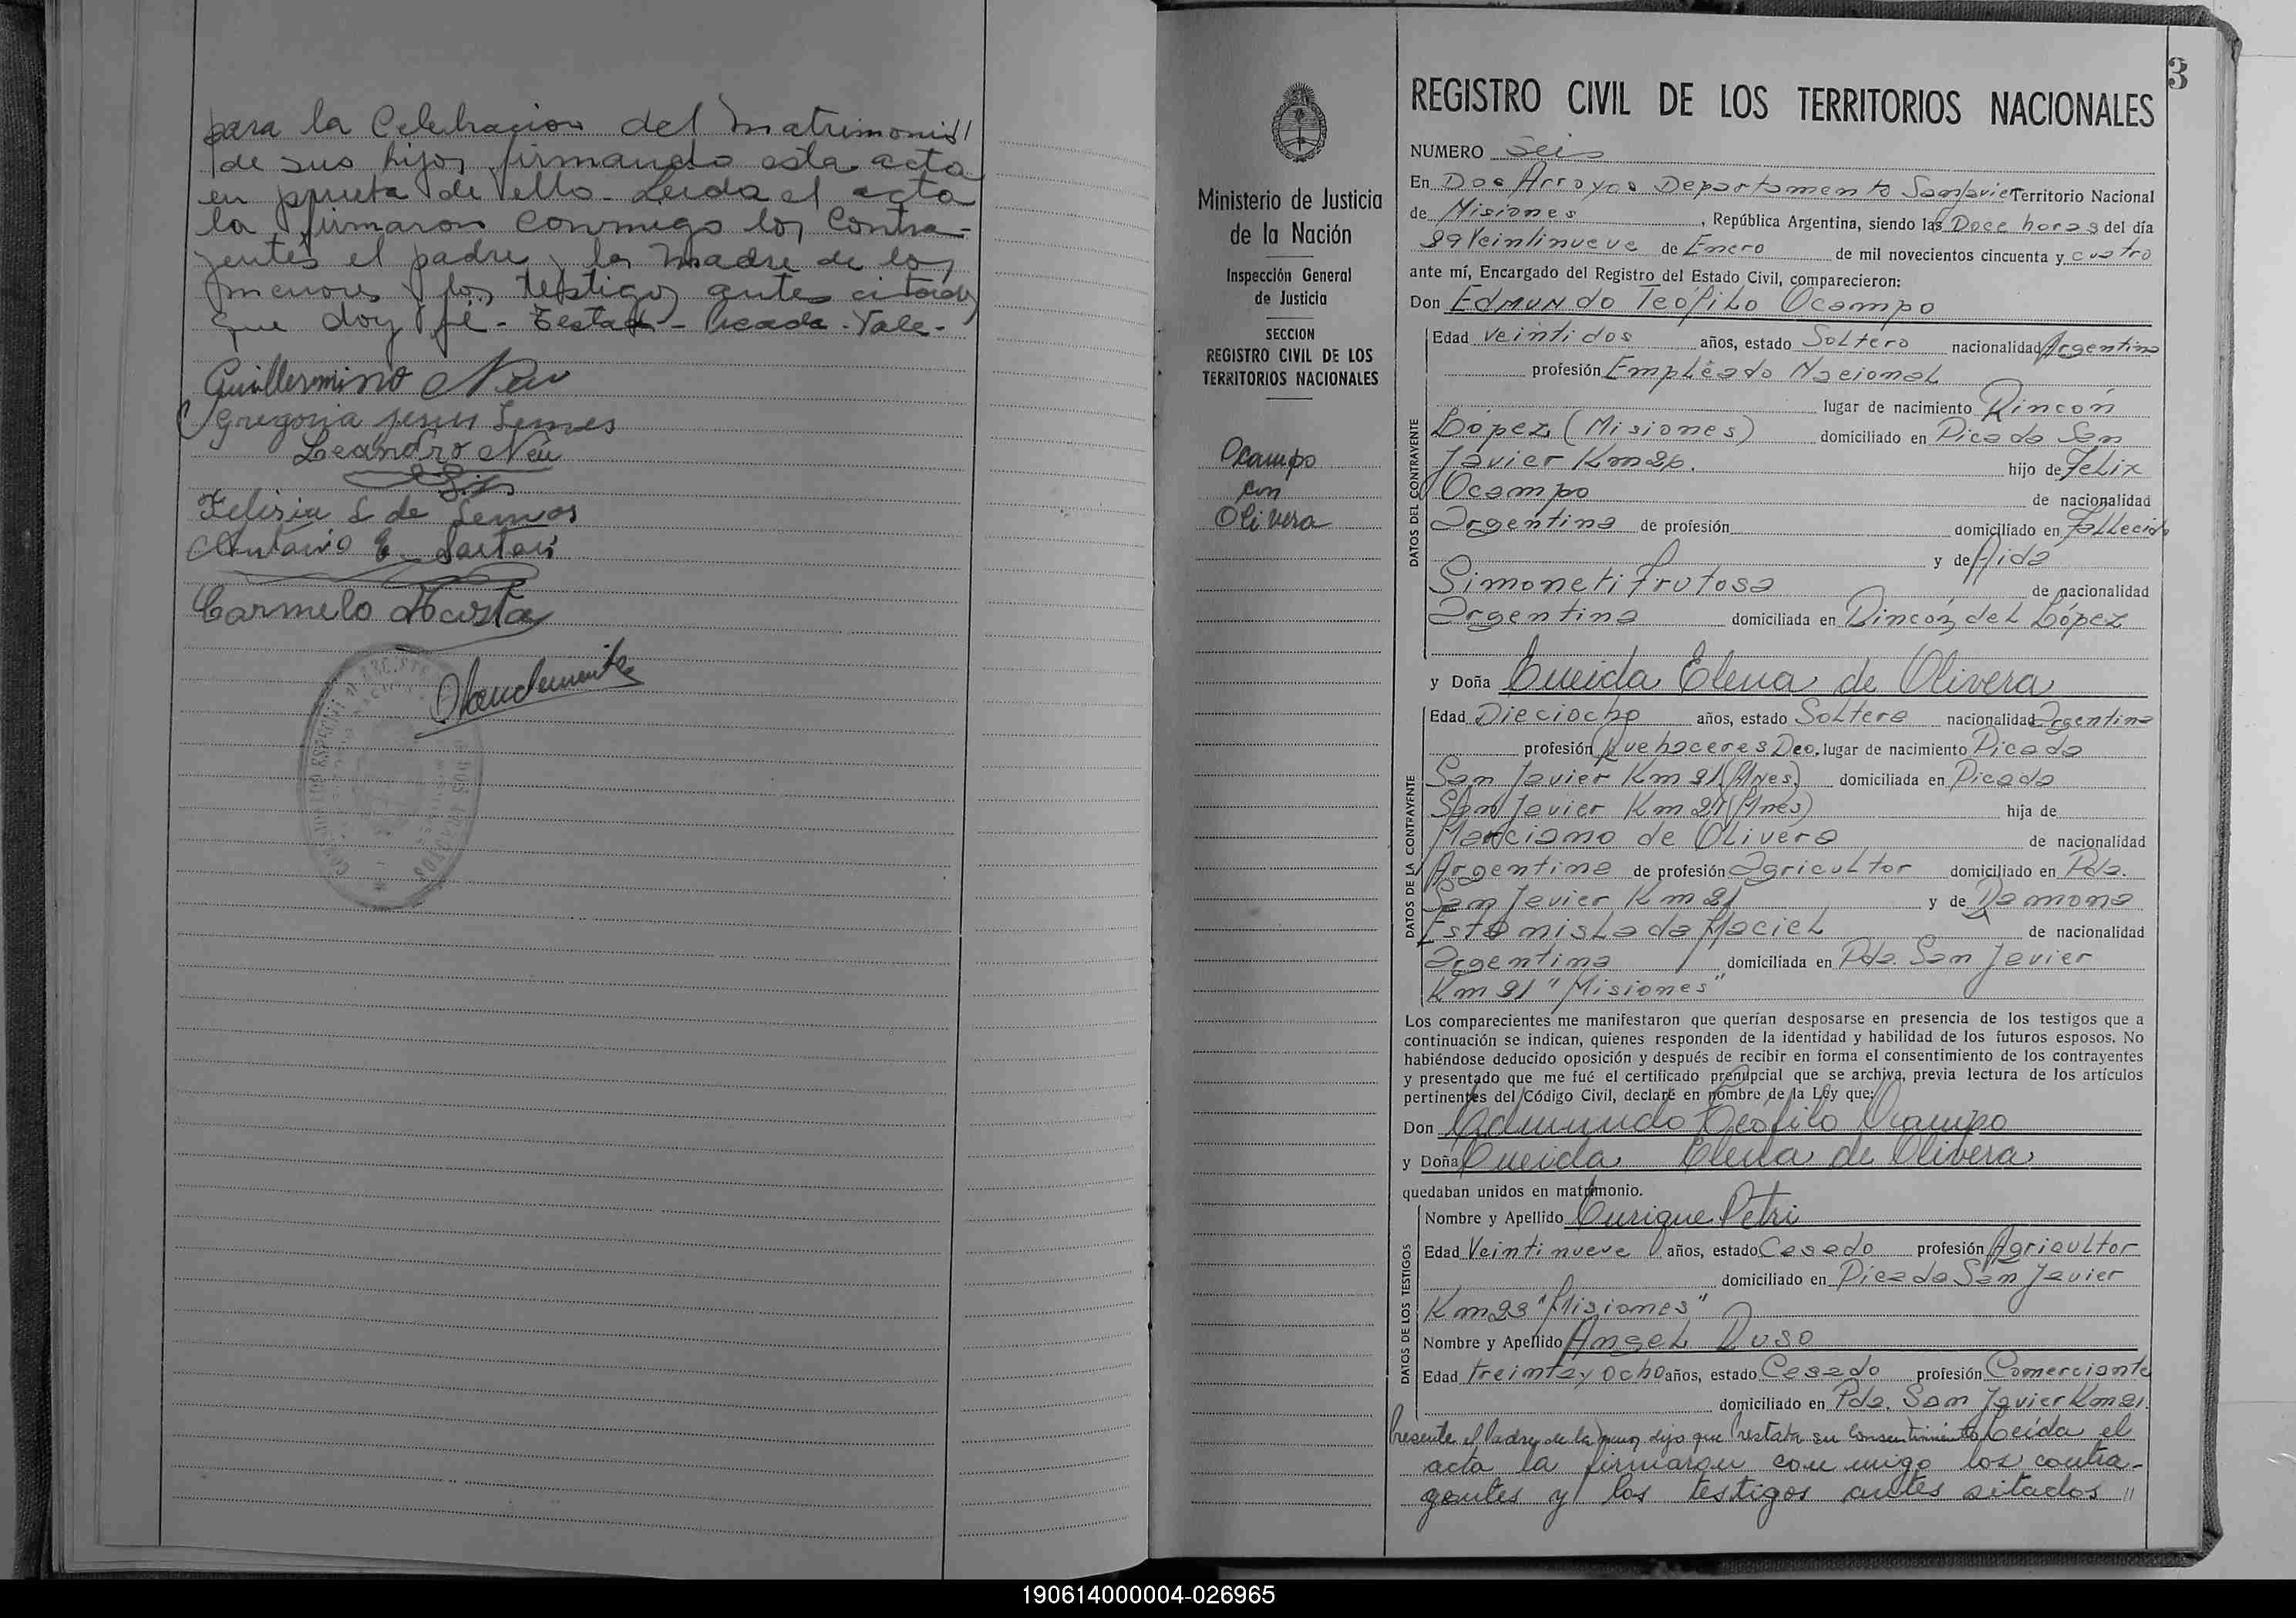 para la Celebracion del Matrimonio//
de sus hijos firmando esta acta
en prueba de ello - Leida el acta
la firmaron conmigo los Contra-
yentes el padre y la Madre de los
menores y los testigos antes citados
que doy fé - Testado - Picada - Vale -
Guillermino Neu
Gregoria Jesus Lemes
Leandro Neu
Felisia L de Lemos
Antonio E. Sartori
Carmelo Acosta
3
REGISTRO CIVIL DE LOS TERRITORIOS NACIONALES
Ministerio de Justicia
de la Nación
Inspección General
de Justicia
SECCION
REGISTRO CIVIL DE LOS
TERRITORIOS NACIONALES
Ocampo
con
Olivera
NUMERO Seis
En Dos Arroyos Departamento San Javier Territorio Nacional
de Misiones, República Argentina, siendo las Doce horas del día
29 Veintinueve de Enero de mil novecientos cincuenta y cuatro
ante mí, Encargado del Registro del Estado Civil, comparecieron:
Don Edmundo Teófilo Ocampo
DATOS DEL CONTRAYENTE
Edad veintidos años, estado Soltero nacionalidad Argentina
profesión Empleado Nacional
lugar de nacimiento Rincón
López (Misiones) domiciliado en Picada San
Javier Km 26. hijo de Felix
Ocampo de nacionalidad
Argentina de profesión domiciliado en Fallecido
y de Aida
Simoneti Frutosa de nacionalidad
Argentina domiciliada en Rincón del López
y Doña Eneida Elena de Olivera
DATOS DE LA CONTRAYENTE
Edad Dieciocho años, estado Soltera nacionalidad Argentina
profesión Quehaceres Deo. lugar de nacimiento Picada
San Javier Km 21 (Mnes) domiciliada en Picada
San Javier Km 21 (Mnes) hija de
Marciano de Olivera de nacionalidad
Argentina de profesión Agricultor domiciliado en Pda.
San Javier Km 21 y de Ramona
Estanislada Maciel de nacionalidad
Argentina domiciliada en Pda. San Javier
Km 21 "Misiones"
Los comparecientes me manifestaron que querían desposarse en presencia de los testigos que a
continuación se indican, quienes responden de la identidad y habilidad de los futuros esposos. No
habiéndose deducido oposición y después de recibir en forma el consentimiento de los contrayentes
y presentado que me fué el certificado prenupcial que se archiva, previa lectura de los artículos
pertinentes del Código Civil, declaré en nombre de la Ley que:
Don Edmundo Teófilo Ocampo
y Doña Eneida Elena de Olivera
quedaban unidos en matrimonio.
DATOS DE LOS TESTIGOS
Nombre y Apellido Enrique Petri
Edad Veintinueve años, estado Casado profesión Agricultor
domiciliado en Picada San Javier
Km 23 "Misiones"
Nombre y Apellido Angel Duso
Edad treinta y ocho años, estado Casado profesión Comerciante
domiciliado en Pda. San Javier Km 21.
Presente el Padre de la menor dijo que Prestaba su Consentimiento Leída el
acta la firmaron conmigo los contra-
yentes y los testigos antes citados //
190614000004-026965